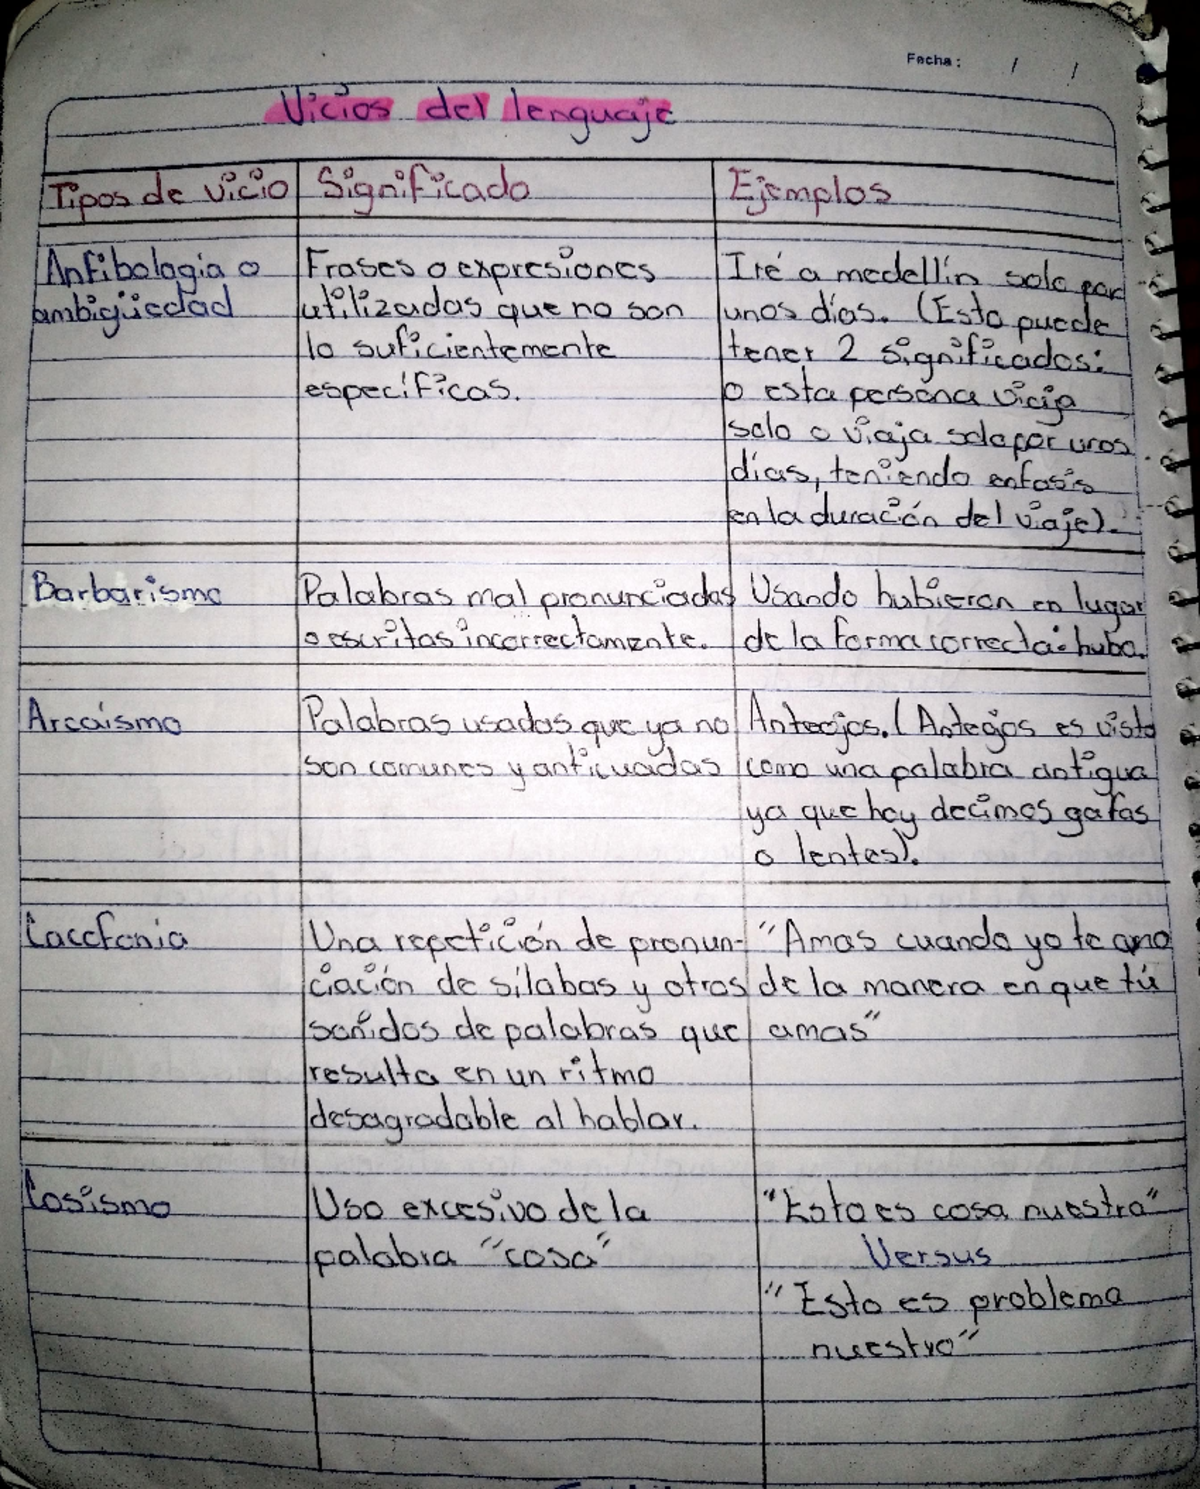 Fecha: / /
Vicios del lenguaje
Tipos de vicio
Significado
Ejemplos
Anfibología o
ambigüedad
Frases o expresiones
utilizadas que no son
lo suficientemente
específicas.
Iré a medellín solo por
unos días. (Esto puede
tener 2 significados:
o esta persona viaja
solo o viaja solo por unos
días, teniendo enfasis
en la duración del viaje).
Barbarismo
Palabras mal pronunciadas
o escritas incorrectamente.
Usando hubieron en lugar
de la forma correcta: hubo.
Arcaísmo
Palabras usadas que ya no
son comunes y anticuadas
Anteojos. (Anteojos es visto
como una palabra antigua
ya que hoy decimos gafas
o lentes).
Cacofonia
Una repetición de pronun-
ciación de sílabas y otros
sonidos de palabras que
resulta en un ritmo
desagradable al hablar.
"Amas cuando yo te amo
de la manera en que tú
amas"
Cosismo
Uso excesivo de la
palabra "cosa"
"Esto es cosa nuestra"
Versus
"Esto es problema
nuestro"